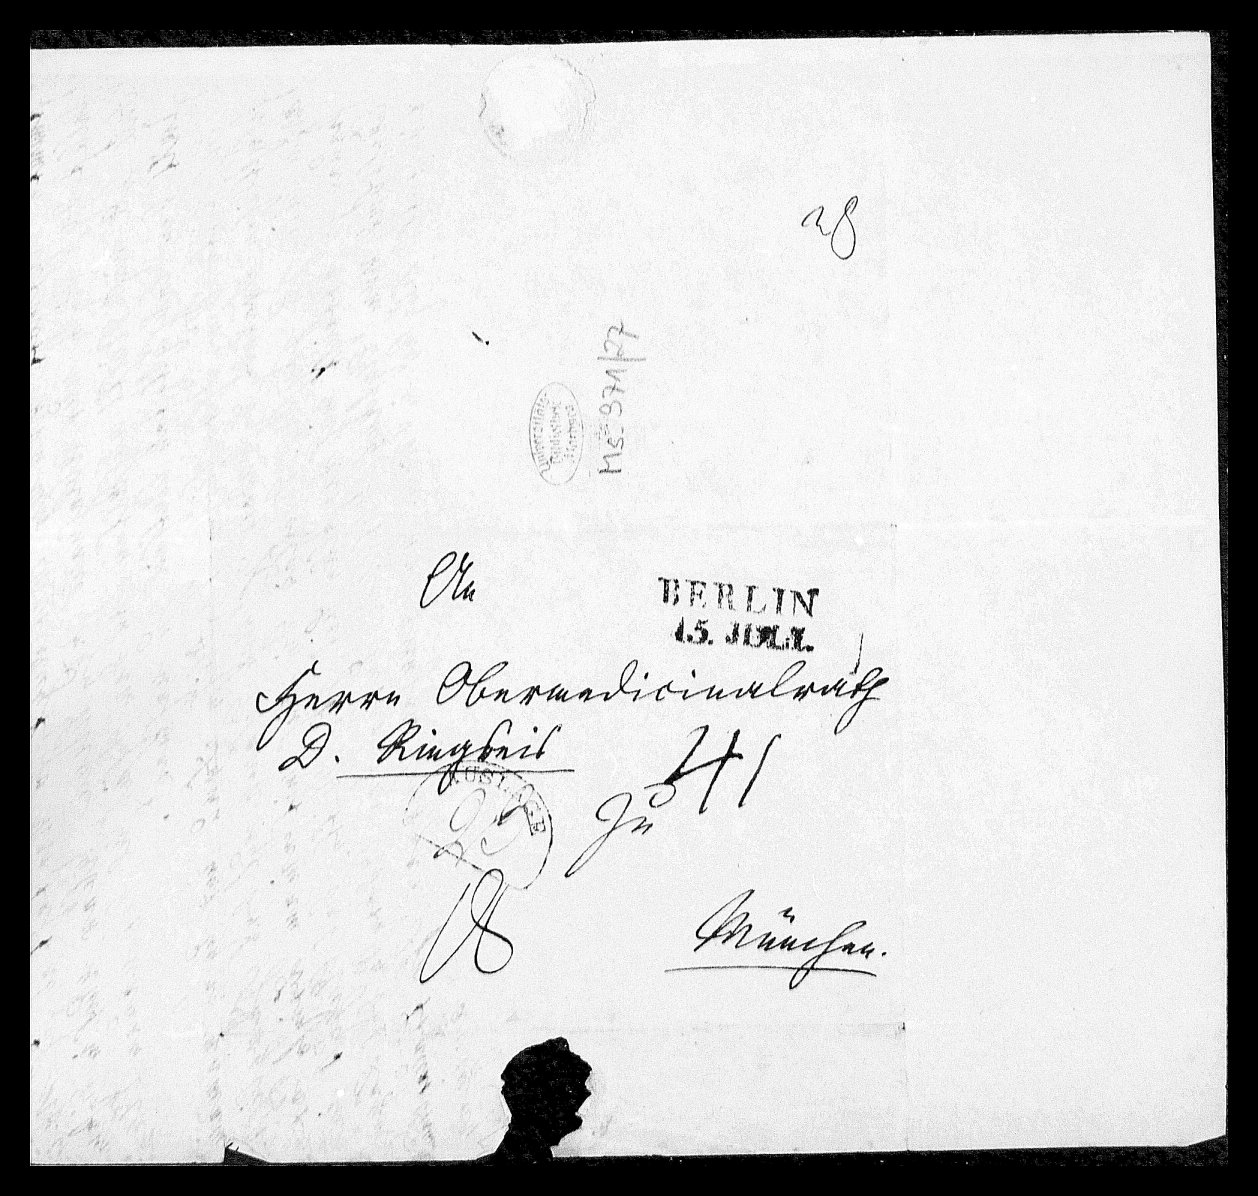 28
Ms. 971/27
Universitäts-
Bibliothek
An
BERLIN
15. JULI.
Herrn Obermedicinalrath
D. Ringseis
41
AUSLAGE
zu
18
München.